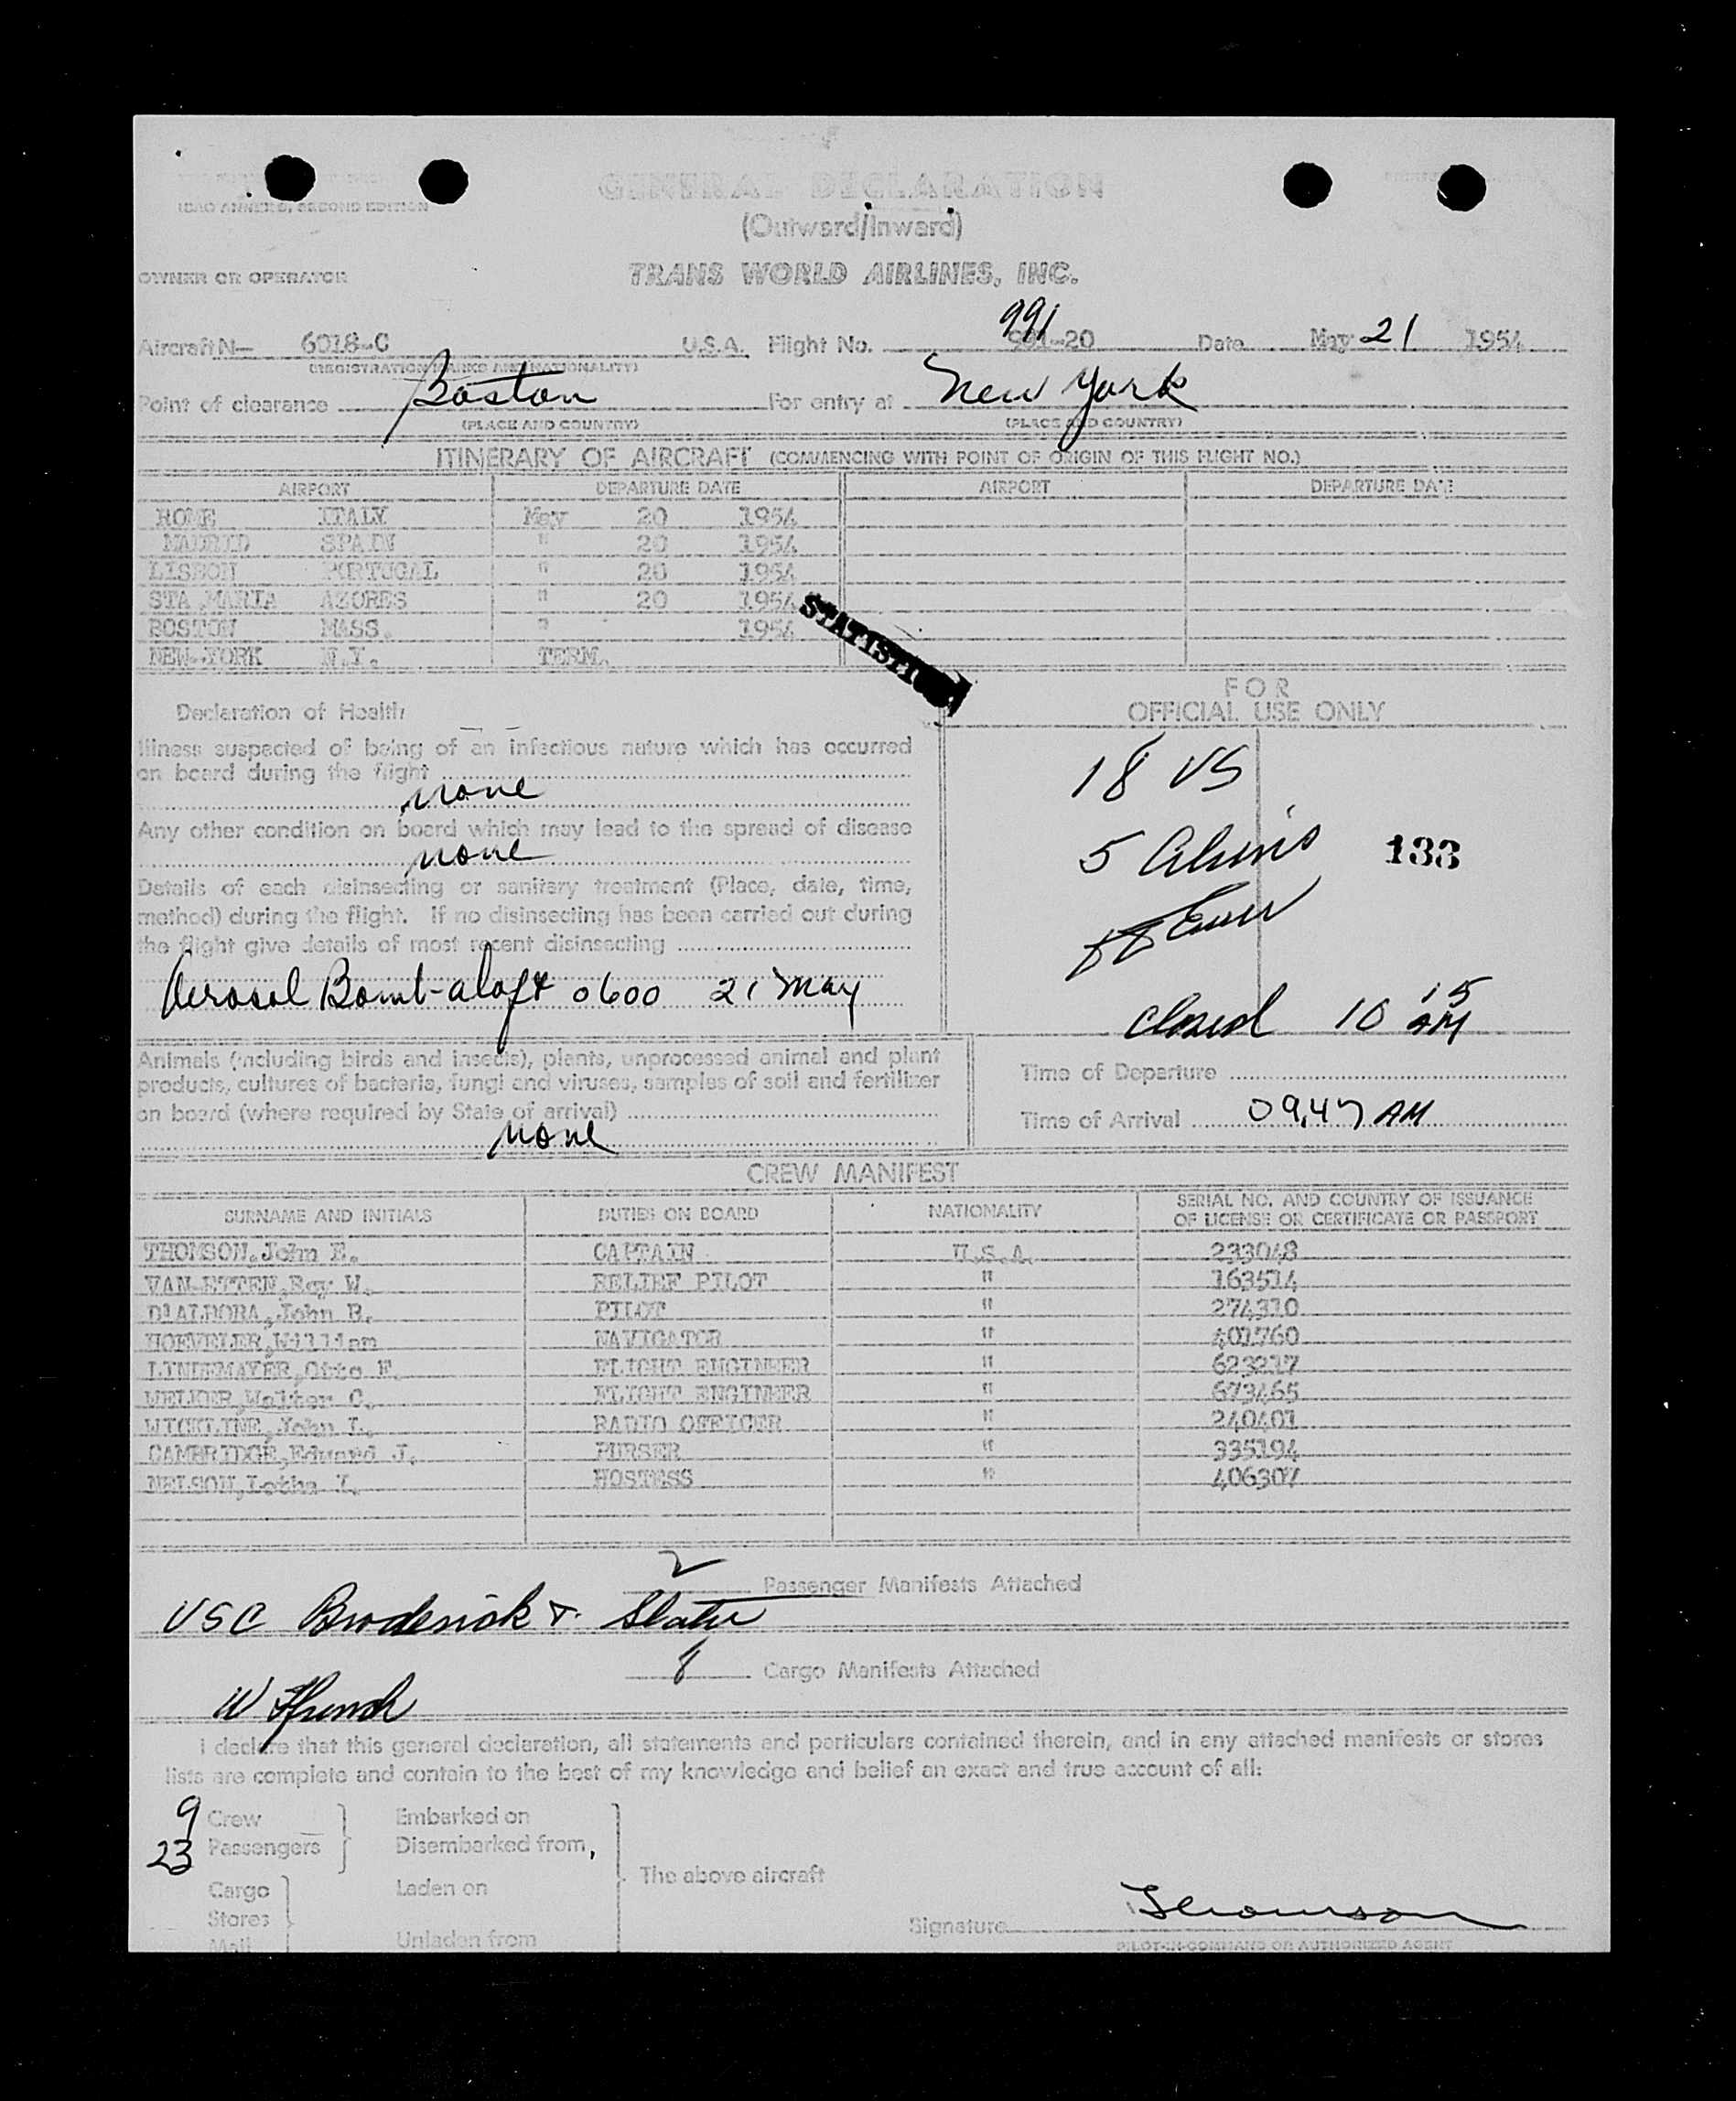 ICAO ANNEX 9, SECOND EDITION
GENERAL DECLARATION
(Outward/Inward)
OWNER OR OPERATOR TRANS WORLD AIRLINES, INC.
991
Aircraft N— 6018-C U.S.A. Flight No. 981-20 Date May 21 1954
(REGISTRATION MARKS AND NATIONALITY)
Point of clearance Boston For entry at New York
(PLACE AND COUNTRY) (PLACE AND COUNTRY)
ITINERARY OF AIRCRAFT (COMMENCING WITH POINT OF ORIGIN OF THIS FLIGHT NO.)
AIRPORT DEPARTURE DATE AIRPORT DEPARTURE DATE
ROME ITALY May 20 1954
MADRID SPAIN " 20 1954
LISBON PORTUGAL " 20 1954
STA MARIA AZORES " 20 1954
BOSTON MASS. " 1954
NEW YORK N.Y. TERM.
FOR
Declaration of Health OFFICIAL USE ONLY
Illness suspected of being of an infectious nature which has occurred
on board during the flight
none
Any other condition on board which may lead to the spread of disease
none
Details of each disinsecting or sanitary treatment (Place, date, time,
method) during the flight. If no disinsecting has been carried out during
the flight give details of most recent disinsecting
Aerosol Bomb-aloft 0600 21 May
18 US
5 Aliens 133
Closed 10 15 AM
Animals (including birds and insects), plants, unprocessed animal and plant
products, cultures of bacteria, fungi and viruses, samples of soil and fertilizer
on board (where required by State of arrival)
none
Time of Departure
Time of Arrival 09,47 AM
CREW MANIFEST
SURNAME AND INITIALS DUTIES ON BOARD NATIONALITY SERIAL NO. AND COUNTRY OF ISSUANCE
OF LICENSE OR CERTIFICATE OR PASSPORT
THOMSON, John E. CAPTAIN U.S.A. 233048
VAN ETTEN, Roy W. RELIEF PILOT " 163514
D'ALBORA, John B. PILOT " 274310
HOEVELER, William NAVIGATOR " 401760
LINDEMAYER, Otto F. FLIGHT ENGINEER " 623217
WELKER, Walter C. FLIGHT ENGINEER " 673465
WICKLINE, John L. RADIO OFFICER " 240401
CAMBRIDGE, Edward J. PURSER " 335194
NELSON, Letha I. HOSTESS " 406307
2 Passenger Manifests Attached
USC Broderick & Slater
8 Cargo Manifests Attached
W
I declare that this general declaration, all statements and particulars contained therein, and in any attached manifests or stores
lists are complete and contain to the best of my knowledge and belief an exact and true account of all:
9 Crew Embarked on
23 Passengers Disembarked from,
The above aircraft
Cargo Laden on
Stores
Signature Thomson
Mail Unladen from
PILOT-IN-COMMAND OR AUTHORIZED AGENT